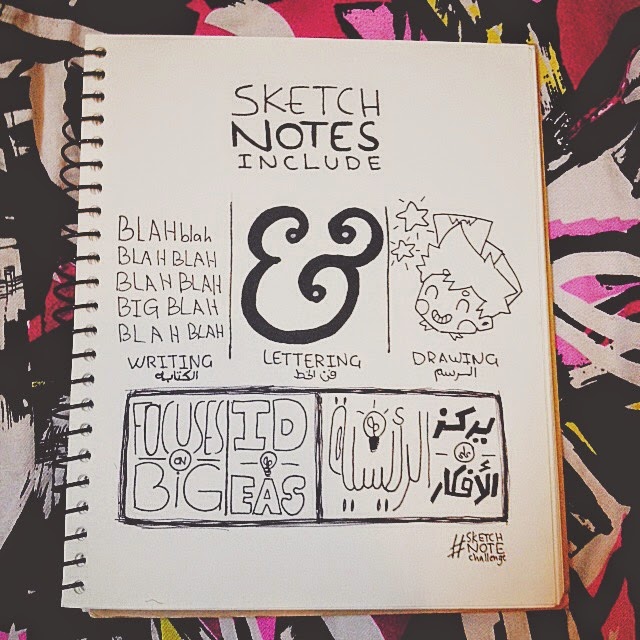 SKETCH
NOTES
INCLUDE
BLAH blah
BLAH BLAH
BLAH BLAH
BIG BLAH
BLAH BLAH
WRITING
الكتابة
&
LETTERING
فن الخط
DRAWING
الرسم
FOCUSES
ON
BIG
ID
EAS
يركز
على
الأفكار
#SKETCH
NOTE
challenge